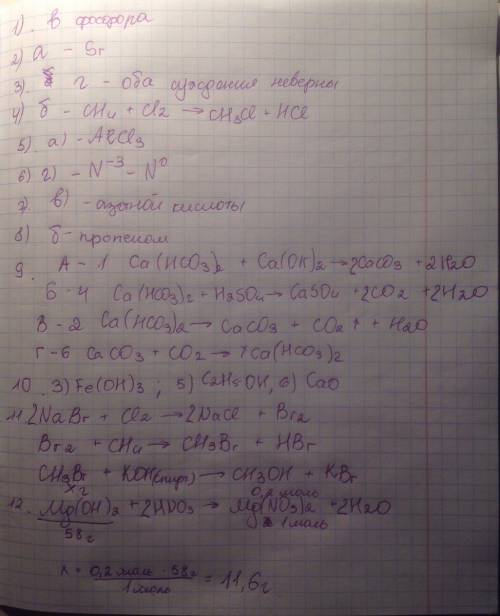 1). в фосфора
2) а - Sr
3) г - оба суждения неверны
4) б - CH₄ + Cl₂ → CH₃Cl + HCl
5) а) - AlCl₃
6) г) - N⁻³ - N⁰
7. в) - азотной кислоты
8) б - пропеном
9. А - 1 Ca(HCO₃)₂ + Ca(OH)₂ → 2CaCO₃ + 2H₂O
Б - 4 Ca(HCO₃)₂ + H₂SO₄ → CaSO₄ + 2CO₂ + 2H₂O
В - 2 Ca(HCO₃)₂ → CaCO₃ + CO₂ + H₂O
Г - 6 CaCO₃ + CO₂ → Ca(HCO₃)₂
10. 3) Fe(OH)₃ ; 5) C₂H₅OH, 6) CaO
11. 2NaBr + Cl₂ → 2NaCl + Br₂
Br₂ + CH₄ → CH₃Br + HBr
CH₃Br + KOH(спирт) → CH₃OH + KBr
x г 0,2 моль
12. Mg(OH)₂ + 2HNO₃ → Mg(NO₃)₂ + 2H₂O
58 г 1 моль
x = 0,2 моль · 58 г / 1 моль = 11,6 г